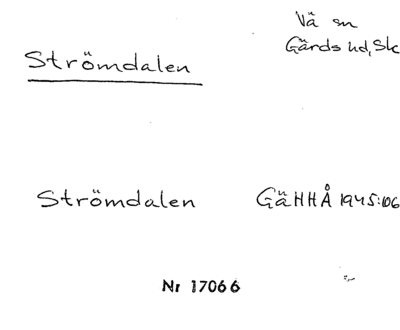 Vä sn
Gärds hd, Sk
Strömdalen
Strömdalen GäHHÅ 1945:106
Nr 17066